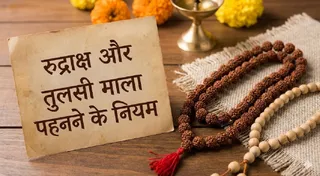 रुद्राक्ष और
तुलसी माला
पहनने के नियम